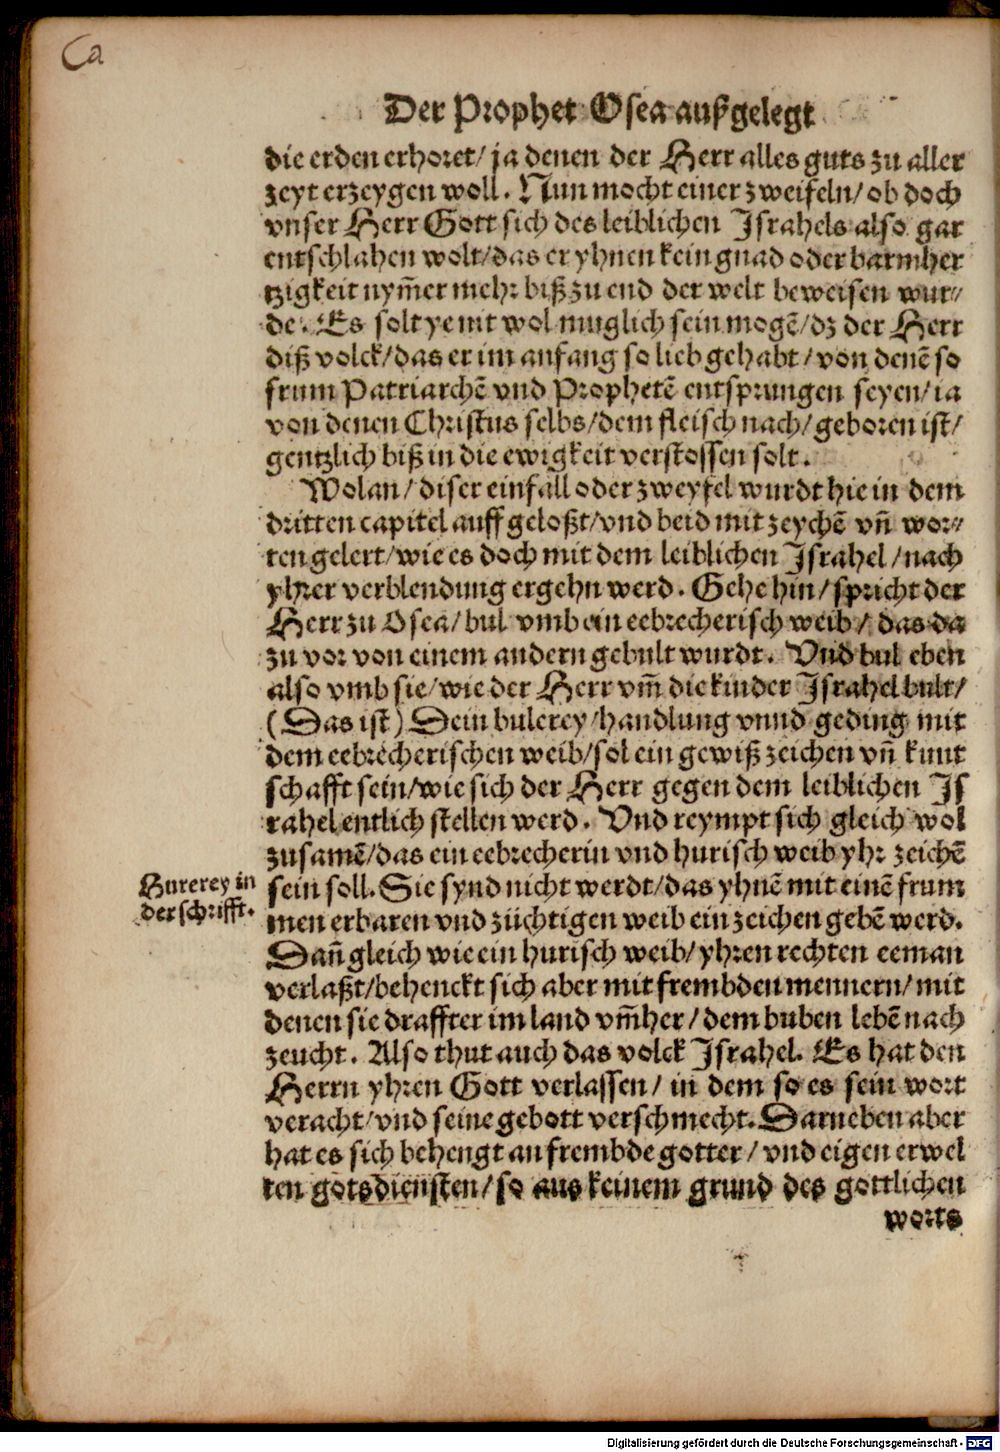 Ca
Der Prophet Osea außgelegt
die erden erhoret/ ja denen der Herr alles guts zu aller
zeyt erzeygen woll. Nun mocht einer zweifeln/ ob doch
vnser Herr Gott sich des leiblichen Israhels also gar
entschlahen wolt/ das er yhnen kein gnad oder barmher
tzigkeit nym̃er mehr biß zu end der welt beweisen wur⸗
de. Es solt ye nit wol muglich sein mogẽ/ dz der Herr
diß volck/ das er im anfang so lieb gehabt/ von denẽ so
frum Patriarchẽ vnd Prophetẽ entsprungen seyen/ ia
von denen Christus selbs/ dem fleisch nach/ geboren ist/
gentzlich biß in die ewigkeit verstossen solt.
Wolan/ diser einfall oder zweyfel wurdt hie in dem
dritten capitel auff geloßt/ vnd beid mit zeychẽ vñ wor⸗
ten gelert/ wie es doch mit dem leiblichen Israhel/ nach
yhrer verblendung ergehn werd. Gehe hin/ spricht der
Herr zu Osea/ bul vmb ein eebrecherisch weib/ das da
zu vor von einem andern gebult wurdt. Vnd bul eben
also vmb sie/ wie der Herr vm̃ die kinder Israhel bult/
(Das ist) Dein bulerey/ handlung vnnd geding mit
dem eebrecherischen weib/ sol ein gewiß zeichen vñ kunt
schafft sein/ wie sich der Herr gegen dem leiblichen Is
rahel entlich stellen werd. Vnd reympt sich gleich wol
zusamẽ/ das ein eebrecherin vnd hurisch weib yhr zeichẽ
Hurerey in
der schrifft.
sein soll. Sie synd nicht werdt/ das yhnẽ mit einẽ frum
men erbaren vnd züchtigen weib ein zeichen gebẽ werd.
Dañ gleich wie ein hurisch weib/ yhren rechten eeman
verlaßt/ behenckt sich aber mit frembden mennern/ mit
denen sie draffter im land vm̃her/ dem buben lebẽ nach
zeucht. Also thut auch das volck Israhel. Es hat den
Herrn yhren Gott verlassen/ in dem so es sein wort
veracht/ vnd seine gebott verschmecht. Darneben aber
hat es sich behengt an frembde gotter/ vnd eigen erwel
ten gotsdiensten/ so aus keinem grund des gottlichen
worts
Digitalisierung gefördert durch die Deutsche Forschungsgemeinschaft - DFG